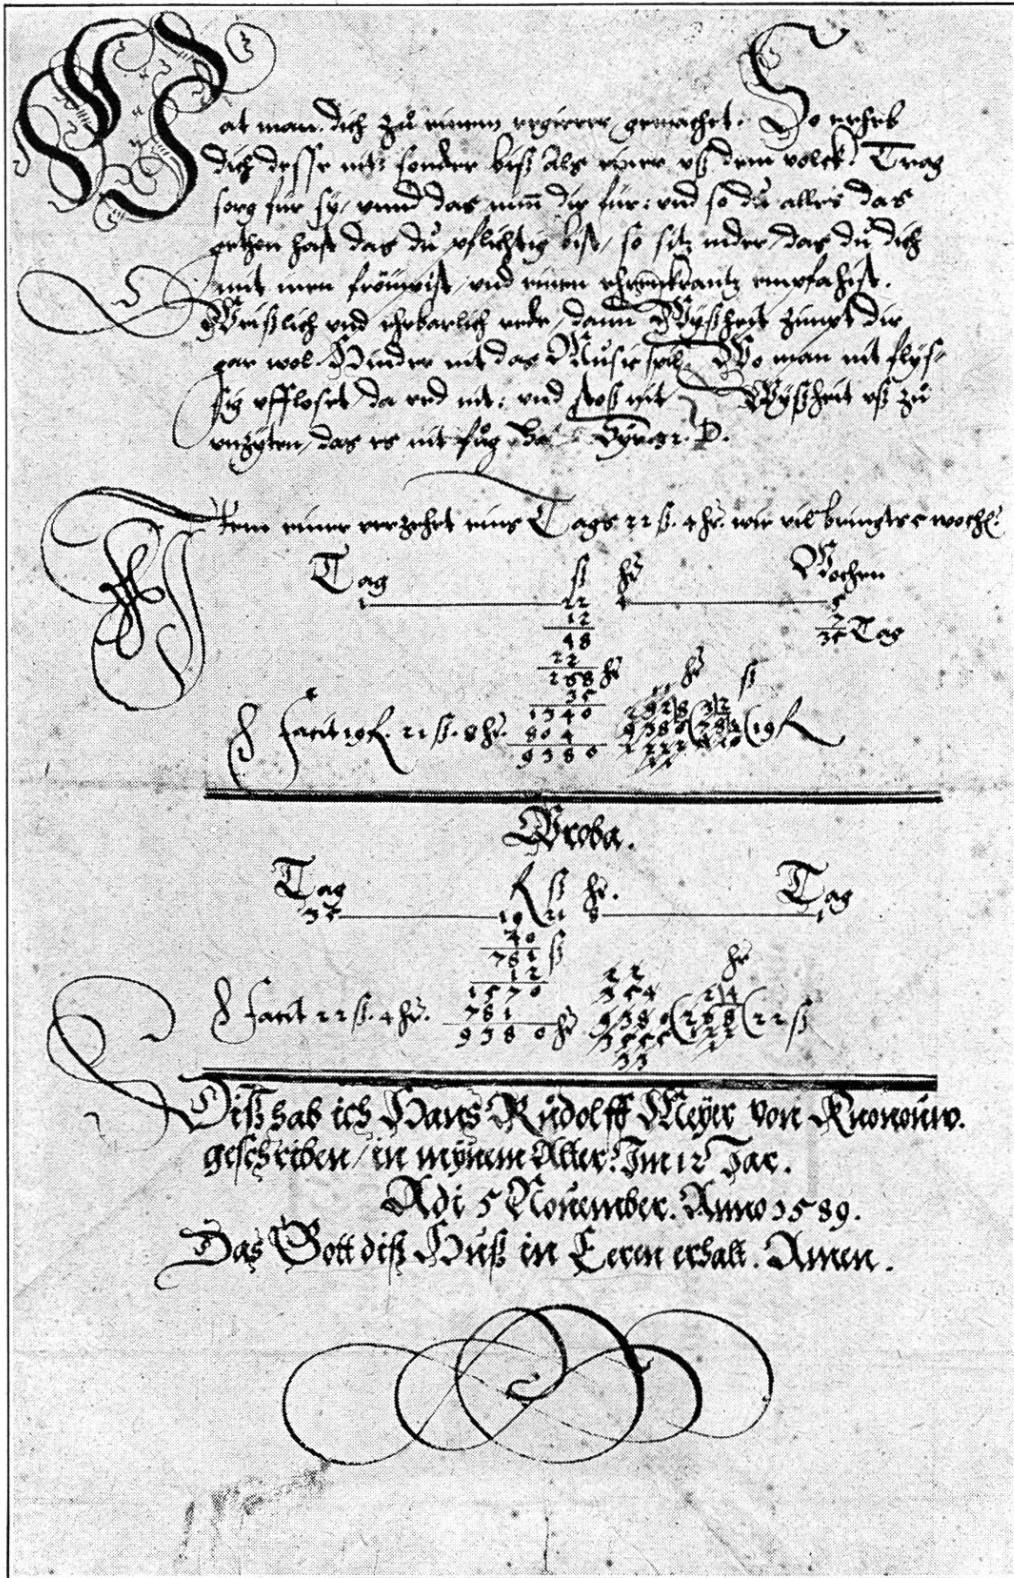 Hat man dich zů einem regierer gemachet. So erheb
dich desse nit: sonder biß als einer uß dem volck. Trag
sorg für sy, vnnd das nim dir für: vnd so du alles das
gethon hast das dů pflichtig bist, so sitz nider, das dů dich
mit inen fröuwist, vnd einen ehrenkrantz empfahist.
Wißlich vnd ehrbarlich rede, dann Wyßheit zimpt dir
gar wol. Hinder nit das Music spil. Wo man nit flys-
sig vffloset, da red nit: vnd stoß nit Wyßheit vß zů
vnzyten, das es nit fůg ha
Item einer verzehrt eins Tags 22 ß. 4 hr. wie vil bringts 5 wochen
Tag ß hr Wochen
1 22 4 5
12 7
48 35 Tag
22
268 hr
35 hr ß
1340
Facit 19 ℔. 11 ß. 8 hr. 804 (19 ℔
9380
Proba.
Tag ℔ ß hr. Tag
35 19 11 8 1
20
781 ß
12 hr
1570
Facit 22 ß. 4 hr. 781
9380 hr 9380 (268 (22 ß
Diß hab ich Hans Růdolff Meyer von Knonouw.
geschriben, in mynem Alter. Im 12 Jar.
Adi 5 Nouember. Anno 1589.
Das Gott diß Huß in Eeren erhalt. Amen.